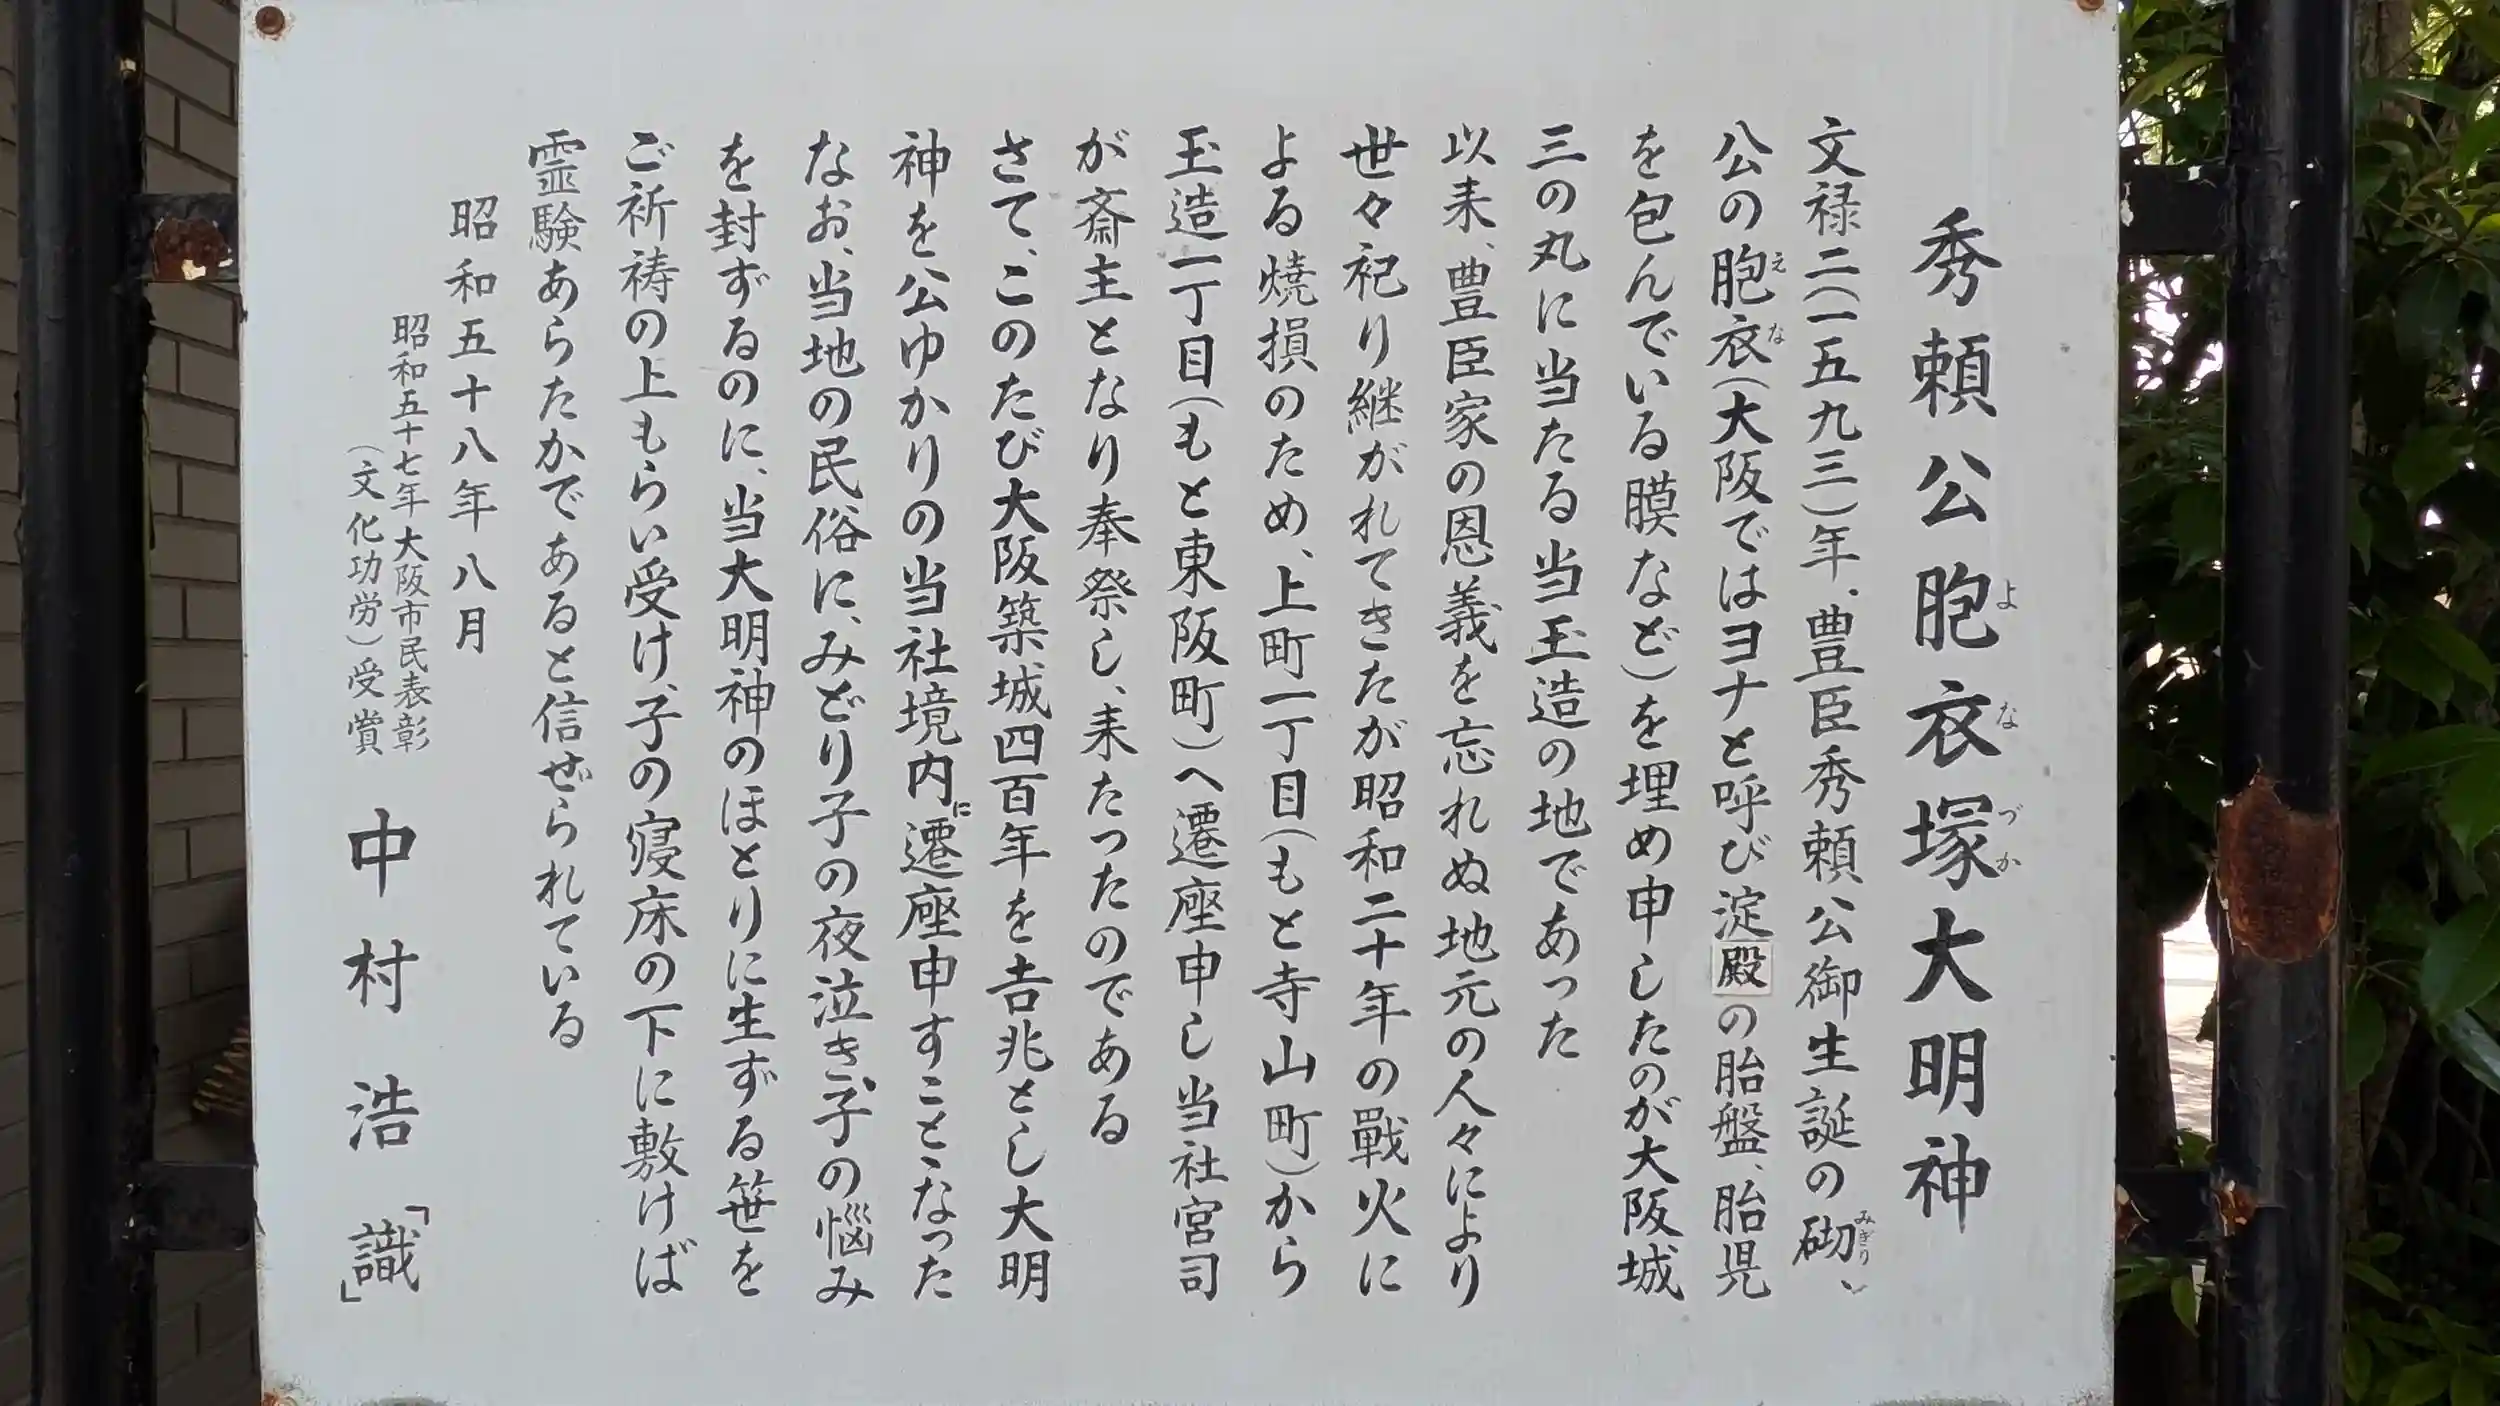 秀頼公胞衣塚大明神
よなづか
文禄二(一五九三)年、豊臣秀頼公御生誕の砌、
みぎり
公の胞衣(大阪ではヨナと呼び淀殿の胎盤、胎児
えな
を包んでいる膜など)を埋め申したのが大阪城
三の丸に当たる当玉造の地であった
以来、豊臣家の恩義を忘れぬ地元の人々により
世々祀り継がれてきたが昭和二十年の戰火に
よる焼損のため、上町一丁目(もと寺山町)から
玉造一丁目(もと東阪町)へ遷座申し当社宮司
が斎主となり奉祭し、来たったのである
さて、このたび大阪築城四百年を吉兆とし大明
神を公ゆかりの当社境内に遷座申すことゝなった
なお、当地の民俗に、みどり子の夜泣き子の悩み
を封ずるのに、当大明神のほとりに生ずる笹を
ご祈祷の上もらい受け、子の寝床の下に敷けば
霊験あらたかであると信ぜられている
昭和五十八年八月
昭和五十七年大阪市民表彰
(文化功労)受賞
中村浩「識」